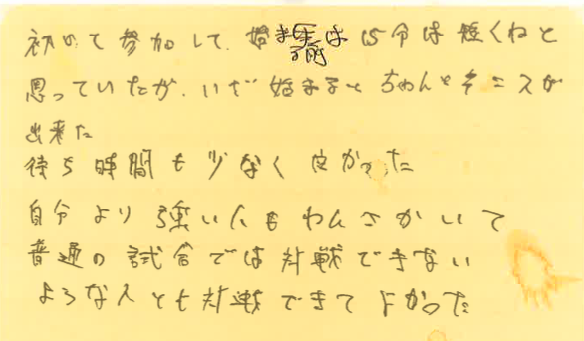 初めて参加して、始まる前は15分は短くねと
思っていたが、いざ始まるとちゃんとテニスが
出来た
待ち時間も少なく良かった
自分より強い人もわんさかいて
普通の試合では対戦できない
ような人とも対戦できてよかった